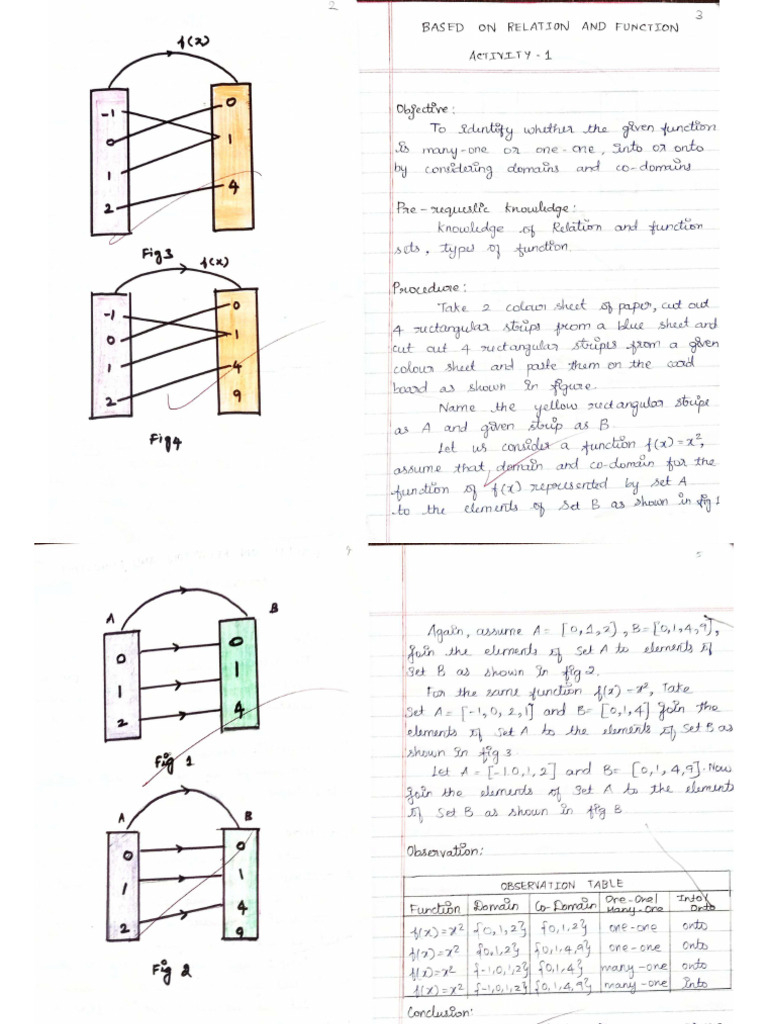 2
f(x)
-1
0
1
2
0
1
4
Fig3
f(x)
-1
0
1
2
0
1
4
9
Fig4
3
BASED ON RELATION AND FUNCTION
ACTIVITY - 1
Objective:
To identify whether the given function
is many-one or one-one, into or onto
by considering domains and co-domains
Pre-requestic knowledge:
Knowledge of Relation and function
sets, types of function.
Procedure:
Take 2 colour sheet of paper, cut out
4 rectangular strips from a blue sheet and
cut out 4 rectangular stripes from a given
colour sheet and paste them on the card
board as shown in figure.
Name the yellow rectangular stripe
as A and given strip as B.
Let us consider a function f(x) = x²,
assume that, domain and co-domain for the
function of f(x) represented by set A
to the elements of set B as shown in fig 1
A
B
0
1
2
0
1
4
Fig 1
A
B
0
1
2
0
1
4
9
Fig 2
Again, assume A = [0,1,2], B = [0,1,4,9],
join the elements of set A to elements of
set B as shown in fig 2.
For the same function f(x) = x², Take
set A = [-1, 0, 2, 1] and B = [0,1,4] join the
elements of set A to the elements of set B as
shown in fig 3.
Let A = [-1.0,1,2] and B = [0,1,4,9]. Now
join the elements of set A to the elements
of set B as shown in fig B.
Observation:
OBSERVATION TABLE
Function Domain Co-Domain One-One/ Many-One Into/ Onto
f(x)=x² {0,1,2} {0,1,2} one-one onto
f(x)=x² {0,1,2} {0,1,4,9} one-one onto
f(x)=x² {-1,0,1,2} {0,1,4} many-one onto
f(x)=x² {-1,0,1,2} {0,1,4,9} many-one into
Conclusion: